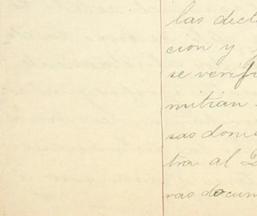 las decl
cion y
se verifi
mitian
sas domi
tra al
ras docum